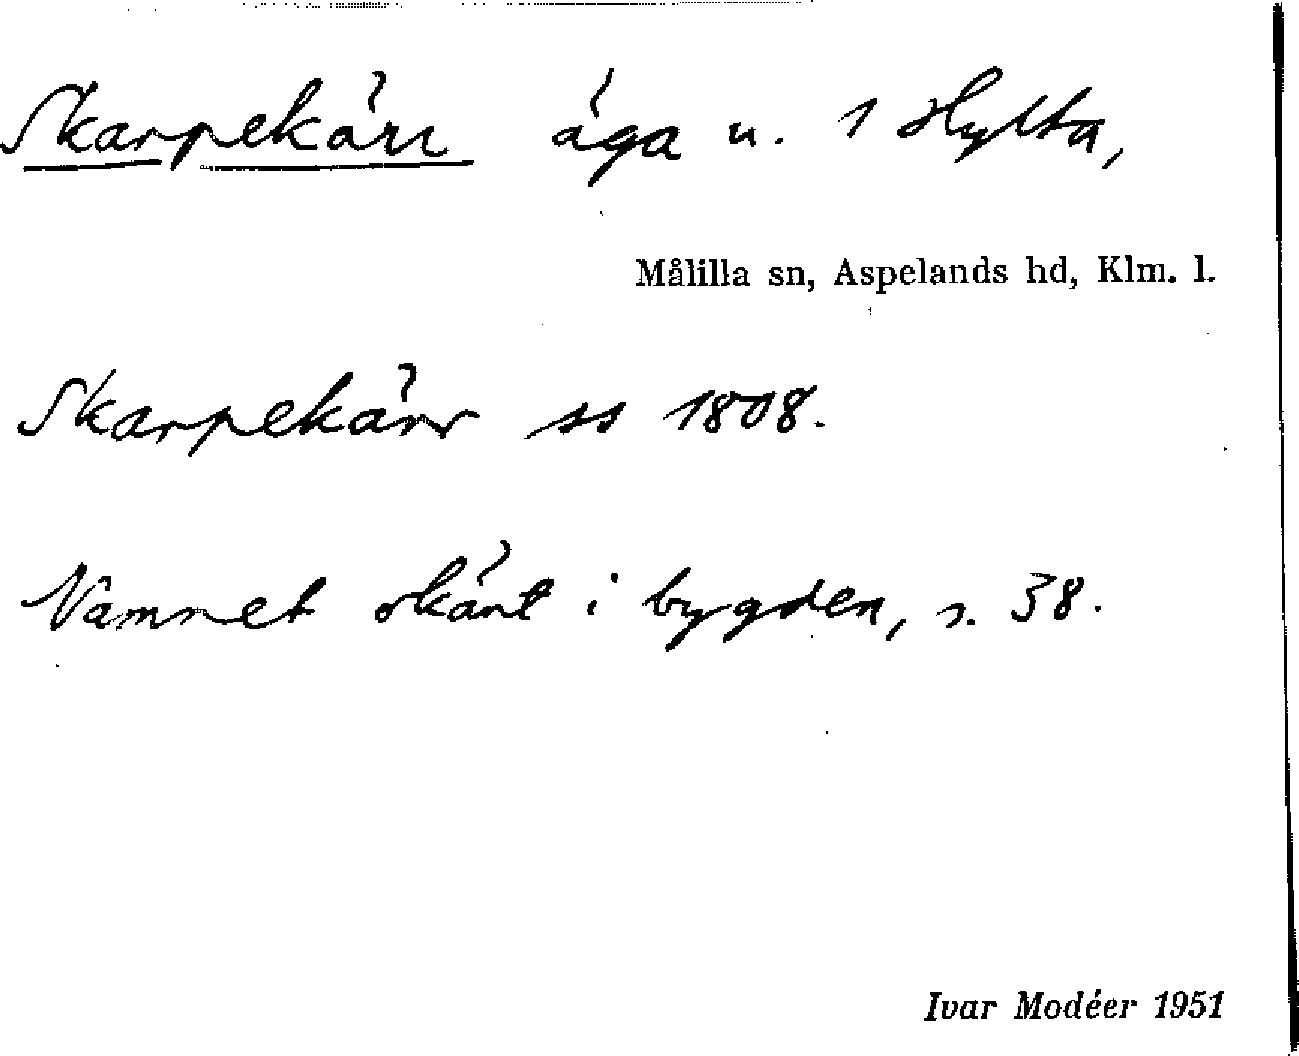 Skarpekärr äga u. 1 Hylta,
Målilla sn, Aspelands hd, Klm. l.
Skarpekärr ss 1808.
Namnet okänt i bygden, s. 38.
Ivar Modéer 1951